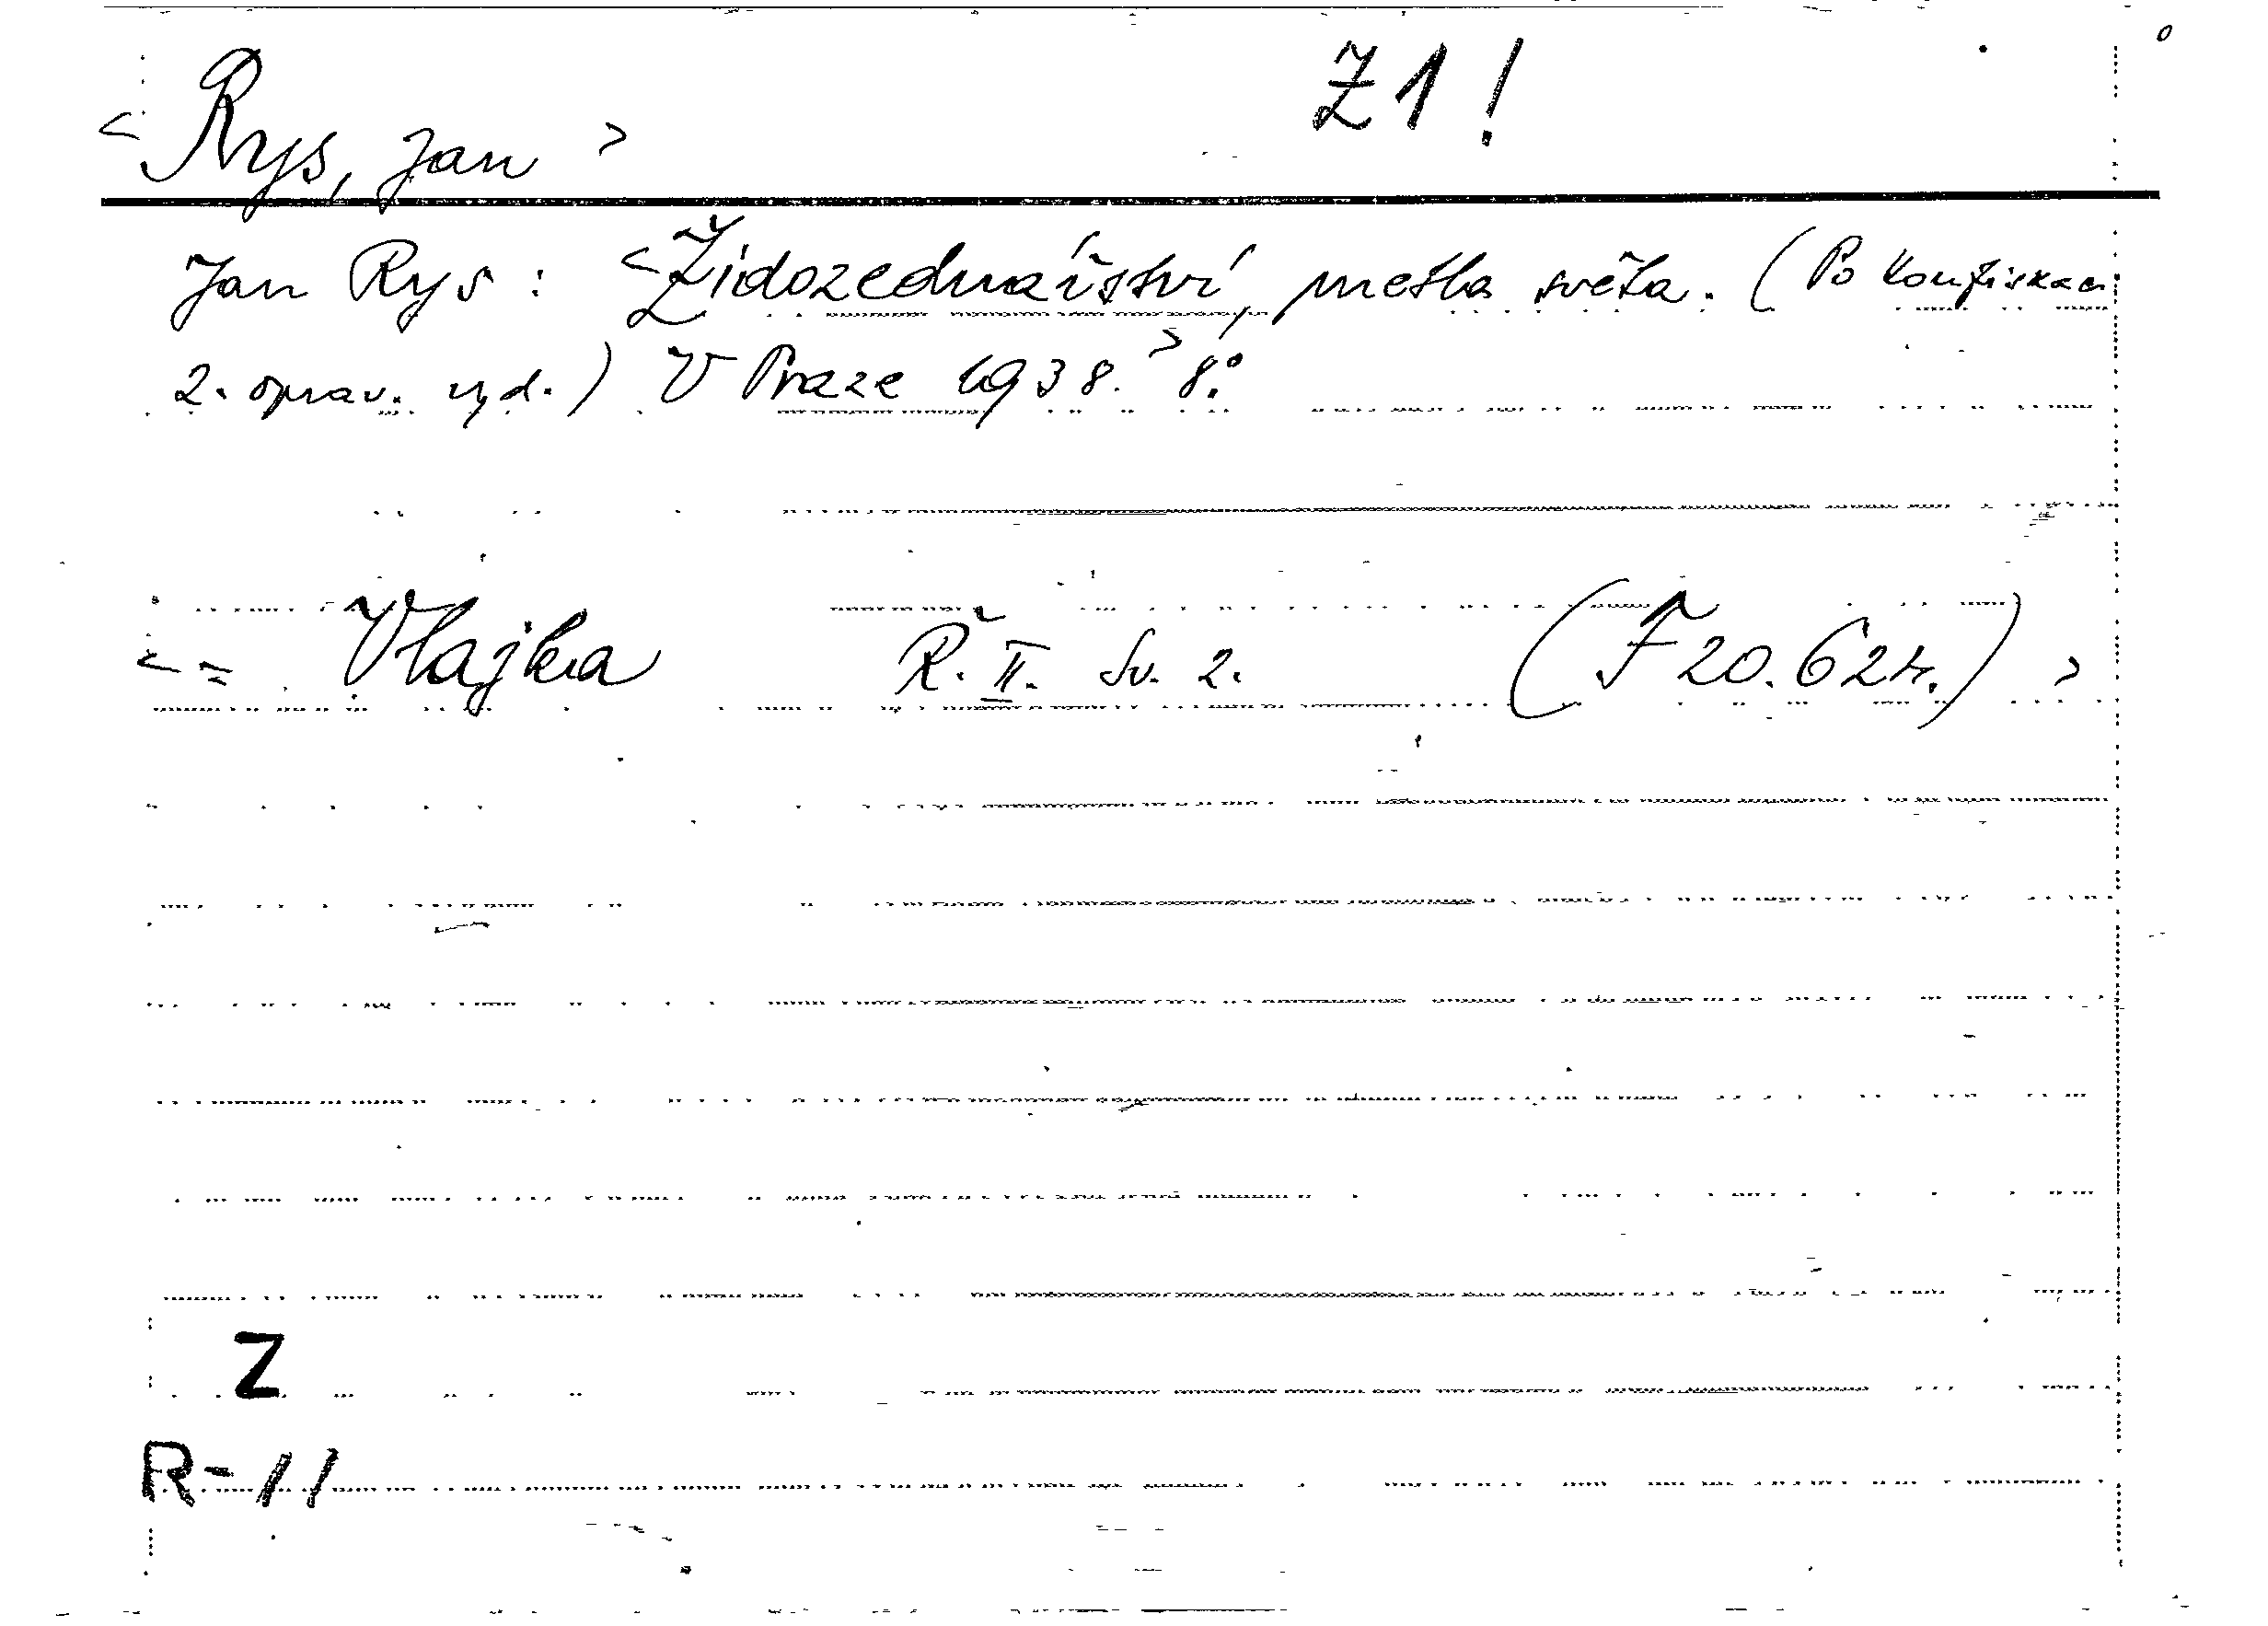 Ž 1 !
< Rys, Jan >
Jan Rys: < Židozednářství, metla světa. (Po konfiskaci
2. oprav. vyd.) V Praze 1938. > 8.°
< = Vlajka Ř. II. Sv. 2. (F 20.624.) >
Z
R-11